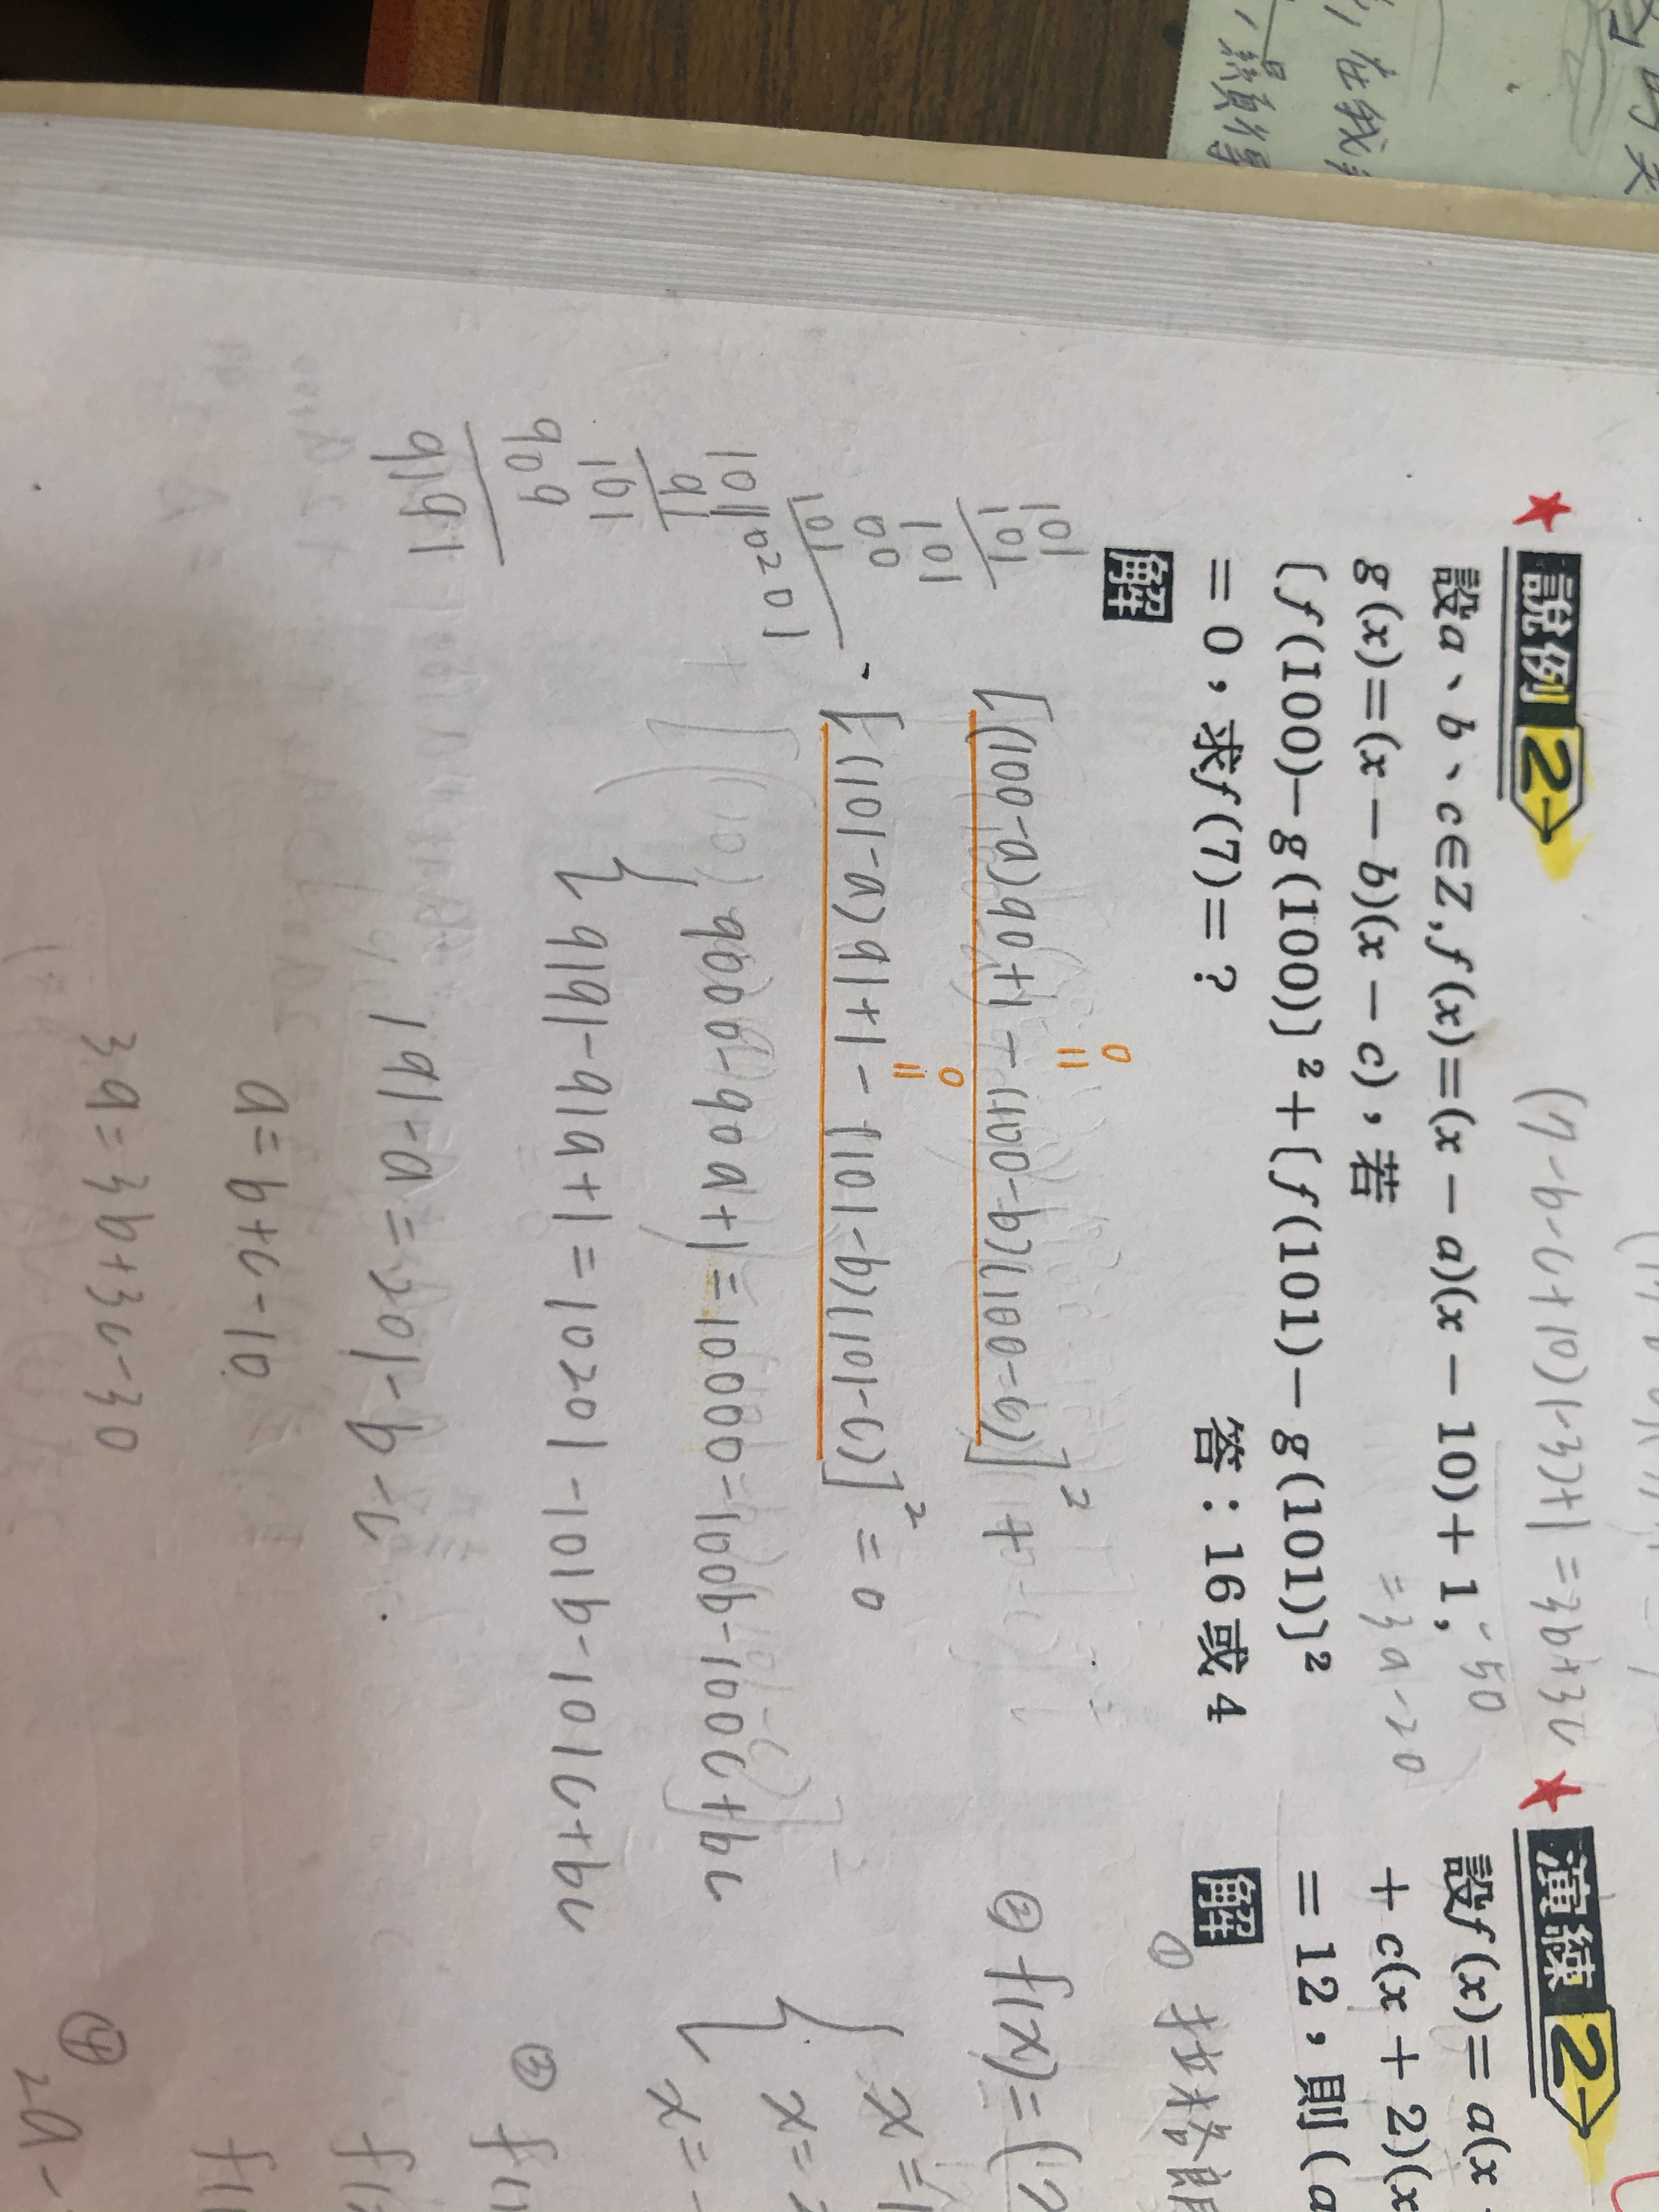 說例2
設a、b、c∈Z,f(x)=(x-a)(x-10)+1,
g(x)=(x-b)(x-c),若
{f(100)-g(100)}²+{f(101)-g(101)}²
=0,求f(7)=?
答:16或4
解
(7-b-c+10)(-3)+1=3b+3c
-50
=3a-20
[(100-a)90+1-(100-b)(100-c)]²+
0
=
[(101-a)91+1-(101-b)(101-c)]²=0
0
=
9000-90a+1=10000-100b-100c+bc
9191-91a+1=10201-101b-101c+bc
191-a=201-b-c
a=b+c-10
3a=3b+3c-30
101
101
101
00
101
10201
101
91
101
909
9191
演練2
設f(x)=a(x
+c(x+2)(x
=12,則(a
解
① 找
② f(x)=(
x=1
x=2
x=-
③ f(
f(
f(
④
2a-